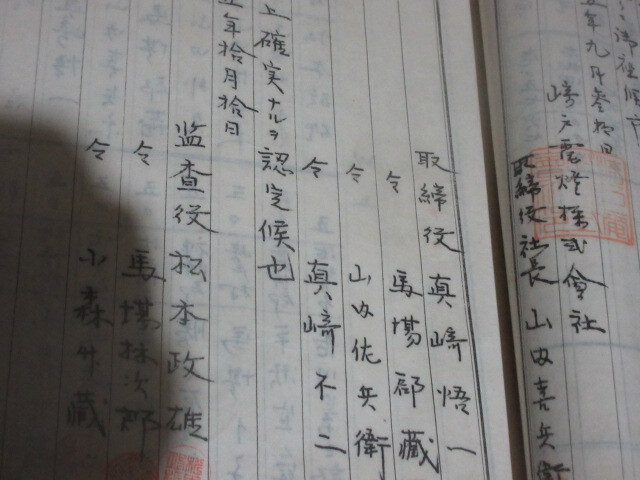 御社候
五年九月参拾日
崎戸電燈株式会社
取締役社長 山内喜兵衛
取締役 真崎悟一
仝 馬場郡藏
仝 山内佐兵衛
仝 真崎不二
上確実ナルヲ認定候也
五年拾月拾日
监査役 松本政雄
仝 馬場林次郎
仝 小森外藏